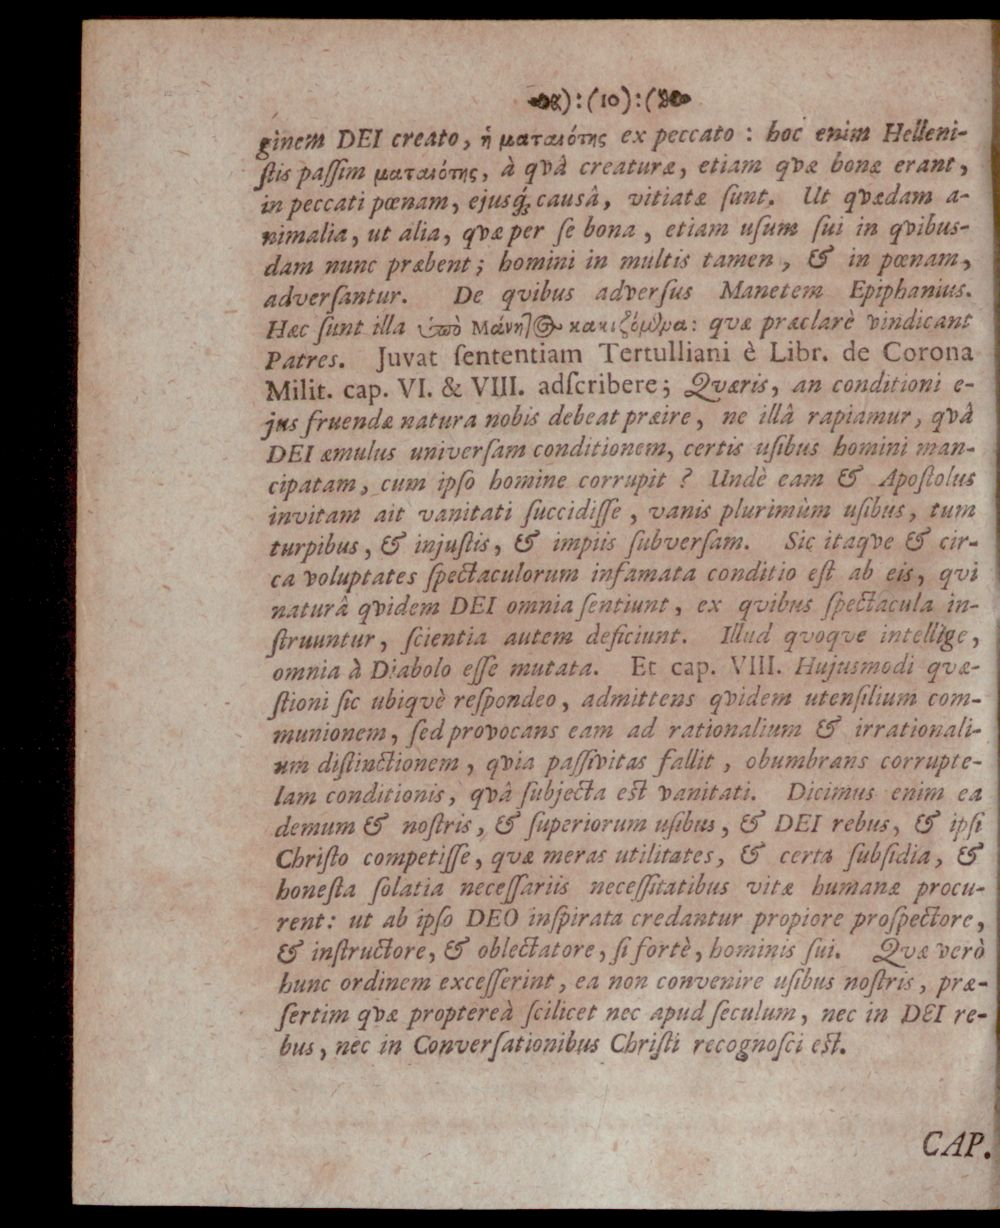 ):(10):(
ginem DEI creato, ἡ ματαιότης ex peccato : hoc enim Helleni-
ſtis paſſim ματαιότης, à qvâ creaturæ, etiam qvæ bonæ erant,
in peccati pœnam, ejusq́; causâ, vitiatæ ſunt. Ut qvædam a-
nimalia, ut alia, qvæ per ſe bona, etiam uſum ſui in qvibus-
dam nunc præbent; homini in multis tamen, & in pœnam,
adverſantur. De qvibus adverſus Manetem Epiphanius.
Hæc ſunt illa ὑπὸ Μάνητος κακιζόμενα: qvæ præclarè vindicant
Patres. Juvat ſententiam Tertulliani è Libr. de Corona
Milit. cap. VI. & VIII. adſcribere; Qværis, an conditioni e-
jus fruendæ natura nobis debeat præire, ne illâ rapiamur, qvâ
DEI æmulus univerſam conditionem, certis uſibus homini man-
cipatam, cum ipſo homine corrupit ? Undè eam & Apoſtolus
invitam ait vanitati ſuccidiſſe, vanis plurimùm uſibus, tum
turpibus, & injuſtis, & impiis ſubverſam. Sic itaqve & cir-
ca voluptates ſpectaculorum infamata conditio eſt ab eis, qvi
naturâ qvidem DEI omnia ſentiunt, ex qvibus ſpectacula in-
ſtruuntur, ſcientia autem deficiunt. Illud qvoqve intellige,
omnia à Diabolo eſſe mutata. Et cap. VIII. Hujusmodi qvæ-
ſtioni ſic ubiqvè reſpondeo, admittens qvidem utenſilium com-
munionem, ſed provocans eam ad rationalium & irrationali-
um diſtinctionem, qvia paſſivitas fallit, obumbrans corrupte-
lam conditionis, qvâ ſubjecta eſt vanitati. Dicimus enim ea
demum & noſtris, & ſuperiorum uſibus, & DEI rebus, & ipſi
Chriſto competiſſe, qvæ meras utilitates, & certa ſubſidia, &
honeſta ſolatia neceſſariis neceſſitatibus vitæ humanæ procu-
rent: ut ab ipſo DEO inſpirata credantur propiore proſpectore,
& inſtructore, & oblectatore, ſi fortè, hominis ſui. Qvæ verò
hunc ordinem exceſſerint, ea non convenire uſibus noſtris, præ-
ſertim qvæ proptereà ſcilicet nec apud ſeculum, nec in DEI re-
bus, nec in Converſationibus Chriſti recognoſci eſt.
CAP.